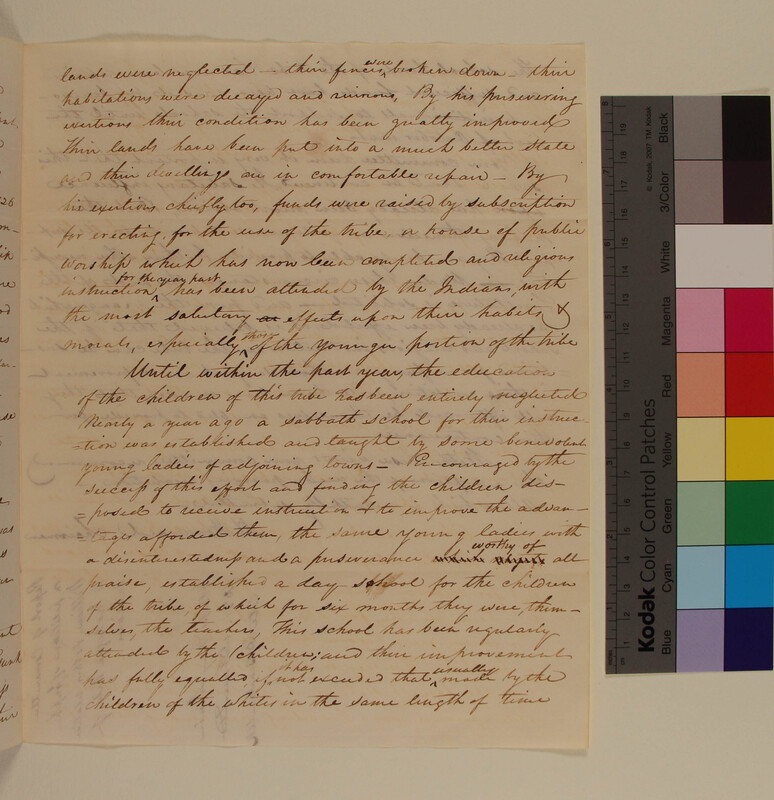 lands were neglected — their fences were broken down — their
habitations were decayed and ruinous, By his persevering
exertions their condition has been greatly improved
Their lands have been put into a much better state
and their dwellings are in comfortable repair — By
his exertions chiefly too, funds were raised by subscription
for erecting, for the use of the tribe, a house of public
worship which has now been completed and religious
instruction for the year past has been attended by the Indians, with
the most salutary effects upon their habits &
morals, especially those of the younger portion of the tribe
Until within the past year, the education
of the children of this tribe has been entirely neglected
Nearly a year ago a sabbath school for their instruc-
-tion was established and taught by some benevolent
young ladies of adjoining towns — Encouraged by the
success of this effort and finding the children dis-
-posed to receive instruction & to improve the advan-
-tages afforded them, the same young ladies with
a disinterestedness and a perseverance worthy of all
praise, established a day school for the children
of the tribe of which for six months they were, them-
selves, the teachers, This school has been regularly
attended by the children; and their improvement
has fully equalled if it has not exceeded that usually made by the
children of the whites in the same length of time
Kodak Color Control Patches
© Kodak, 2007 TM: Kodak
Blue
Cyan
Green
Yellow
Red
Magenta
White
3/Color
Black